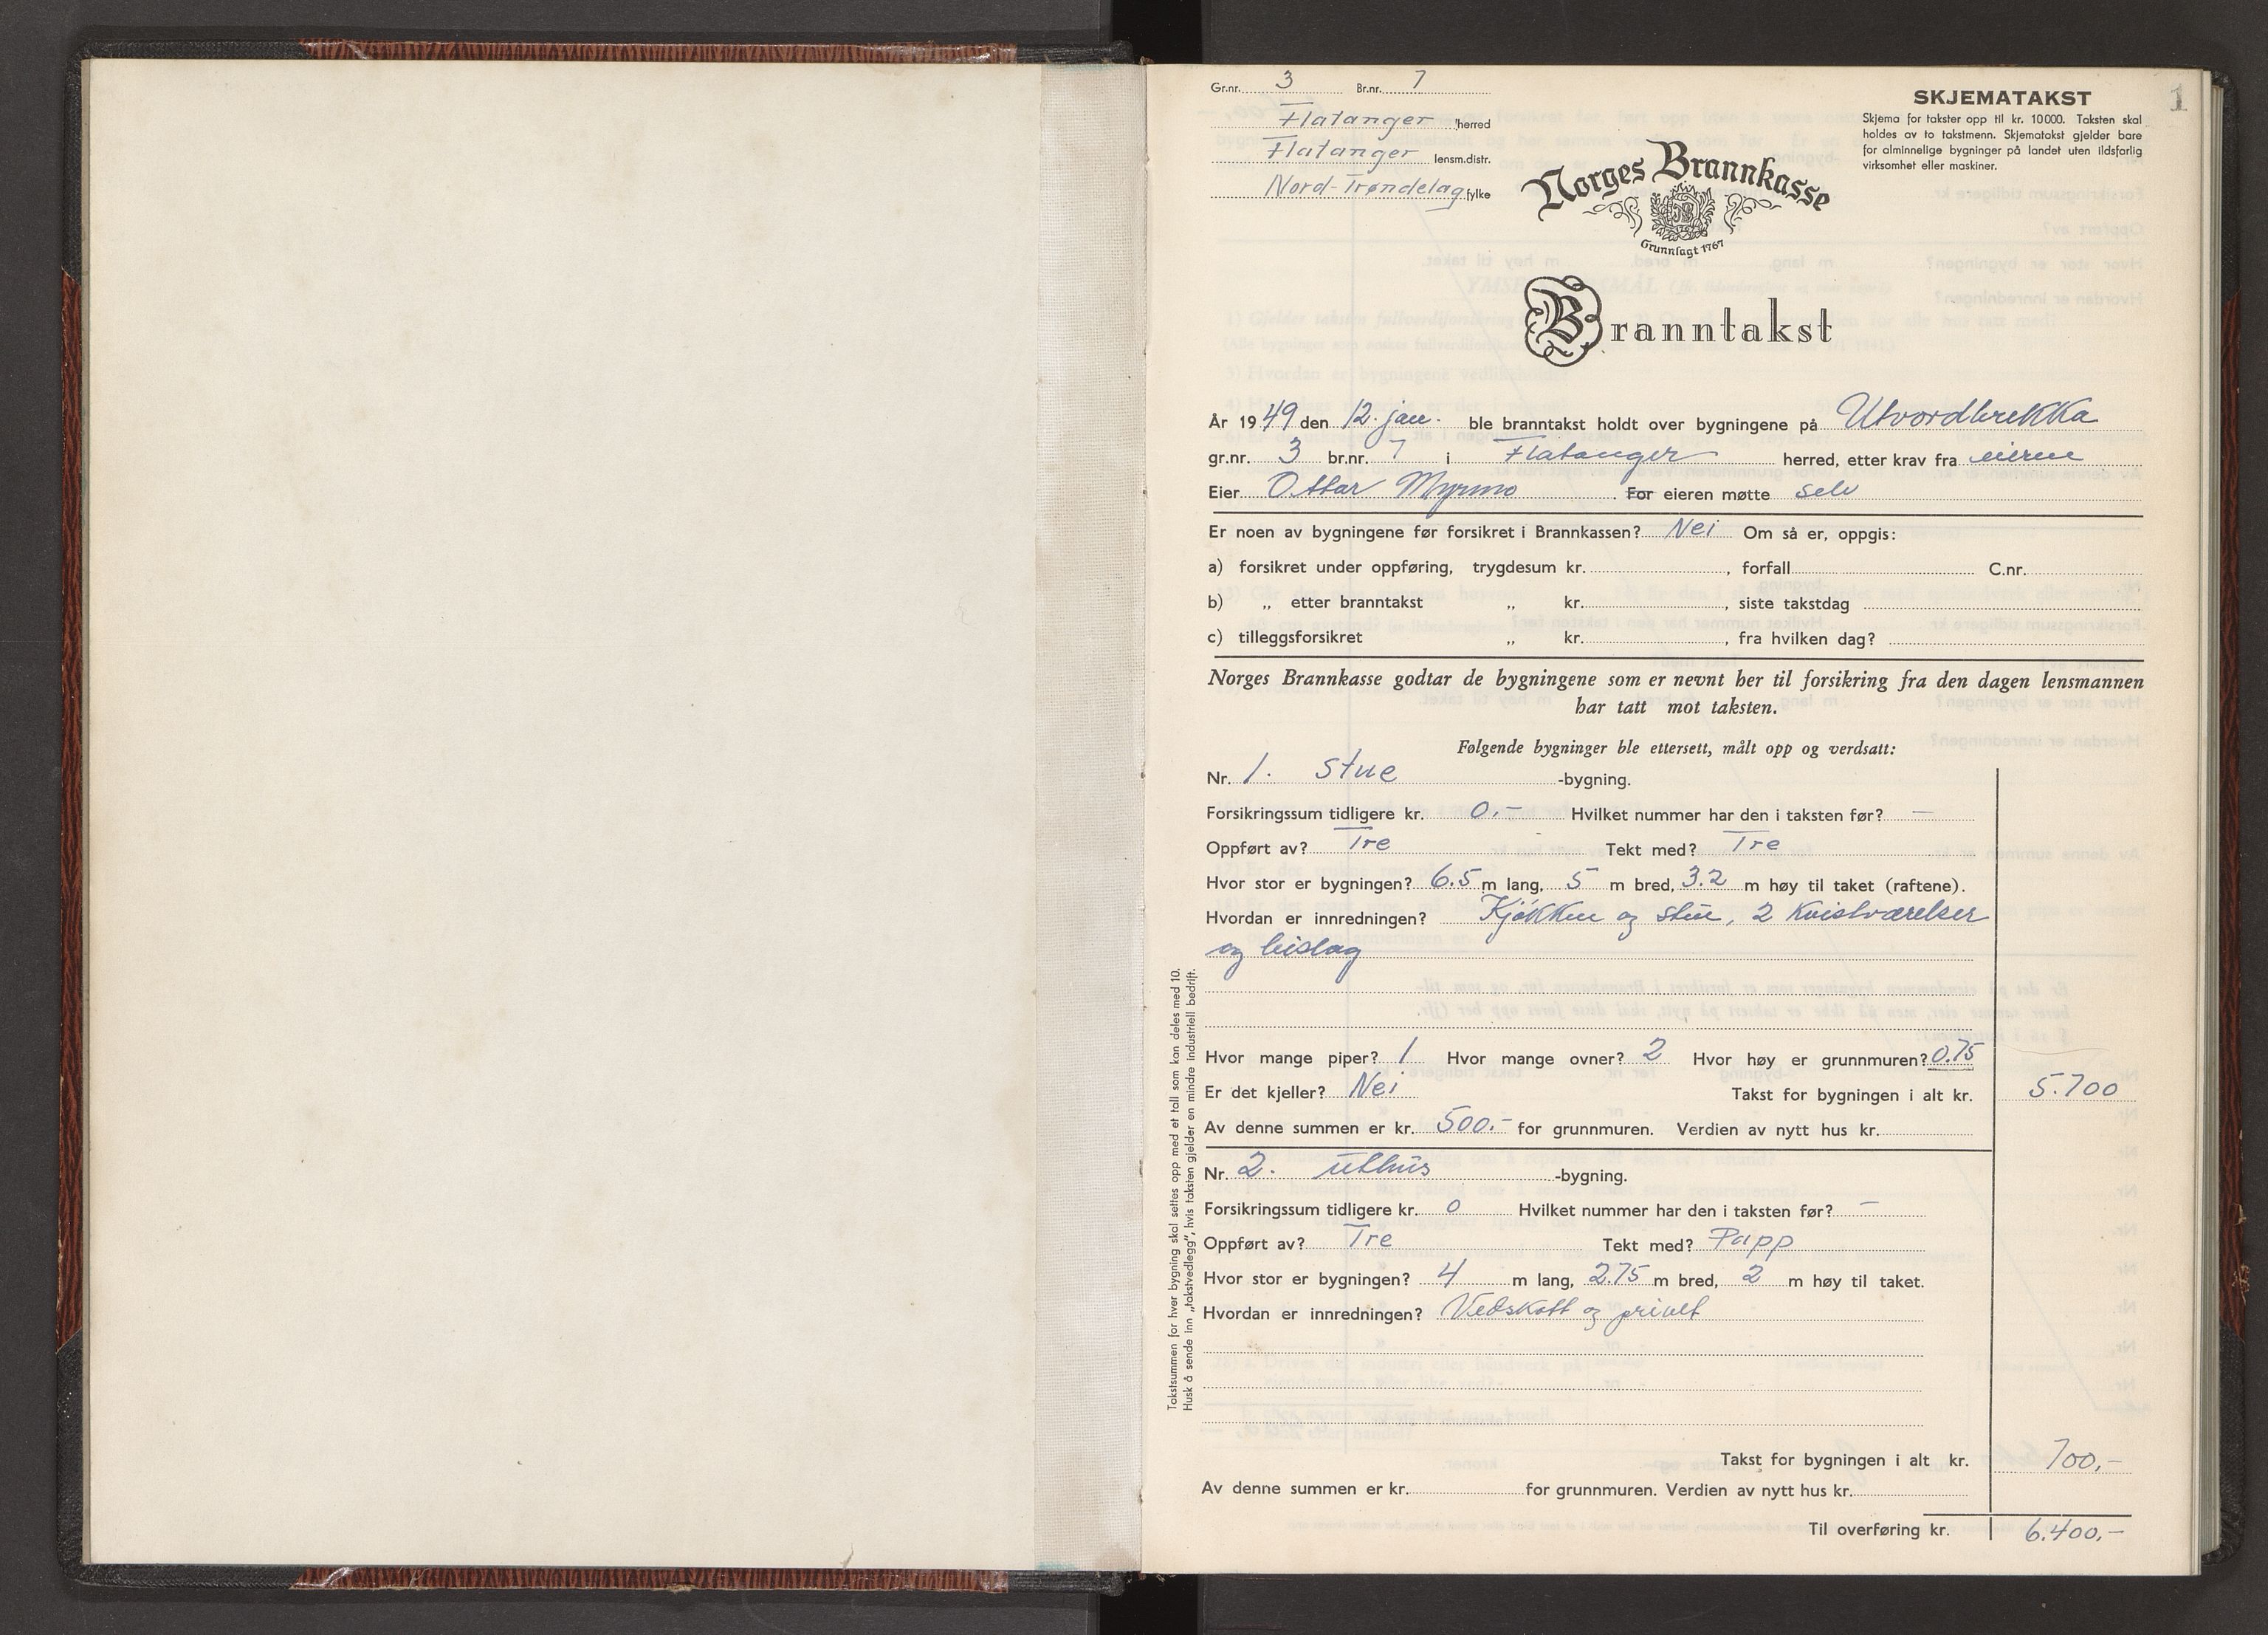 Gr.nr. 3 Br.nr. 7
Flatanger herred
Flatanger lensm.distr.
Nord-Trøndelag fylke
SKJEMATAKST
1
Skjema for takster opp til kr. 10000. Taksten skal
holdes av to takstmenn. Skjematakst gjelder bare
for alminnelige bygninger på landet uten ildsfarlig
virksomhet eller maskiner.
Norges Brannkasse
Grunnlagt 1767
Branntakst
År 1949 den 12. jan. ble branntakst holdt over bygningene på Utvordbrekka
gr.nr. 3 br.nr. 7 i Flatanger herred, etter krav fra eieren
Eier Ottar Myrmo. For eieren møtte selv
Er noen av bygningene før forsikret i Brannkassen? Nei Om så er, oppgis:
a) forsikret under oppføring, trygdesum kr. , forfall C.nr.
b) „ etter branntakst „ kr. , siste takstdag
c) tilleggsforsikret „ kr. , fra hvilken dag?
Norges Brannkasse godtar de bygningene som er nevnt her til forsikring fra den dagen lensmannen
har tatt mot taksten.
Følgende bygninger ble ettersett, målt opp og verdsatt:
Nr. 1. Stue -bygning.
Forsikringssum tidligere kr. 0.- Hvilket nummer har den i taksten før? —
Oppført av? Tre Tekt med? Tre
Hvor stor er bygningen? 6.5 m lang, 5 m bred, 3.2 m høy til taket (raftene).
Hvordan er innredningen? Kjøkken og stue, 2 Kvistværelser
og bislag
Hvor mange piper? 1 Hvor mange ovner? 2 Hvor høy er grunnmuren? 0.75
Er det kjeller? Nei Takst for bygningen i alt kr. 5.700
Av denne summen er kr. 500.- for grunnmuren. Verdien av nytt hus kr.
Nr. 2. Uthus -bygning.
Forsikringssum tidligere kr. 0 Hvilket nummer har den i taksten før? —
Oppført av? Tre Tekt med? Papp
Hvor stor er bygningen? 4 m lang, 2.75 m bred, 2 m høy til taket.
Hvordan er innredningen? Vedskott og privet
Takst for bygningen i alt kr. 700,-
Av denne summen er kr. for grunnmuren. Verdien av nytt hus kr.
Til overføring kr. 6.400,-
Takstsummen for hver bygning skal settes opp med et tall som kan deles med 10.
Husk å sende inn „takstvedlegg", hvis taksten gjelder en mindre industriell bedrift.